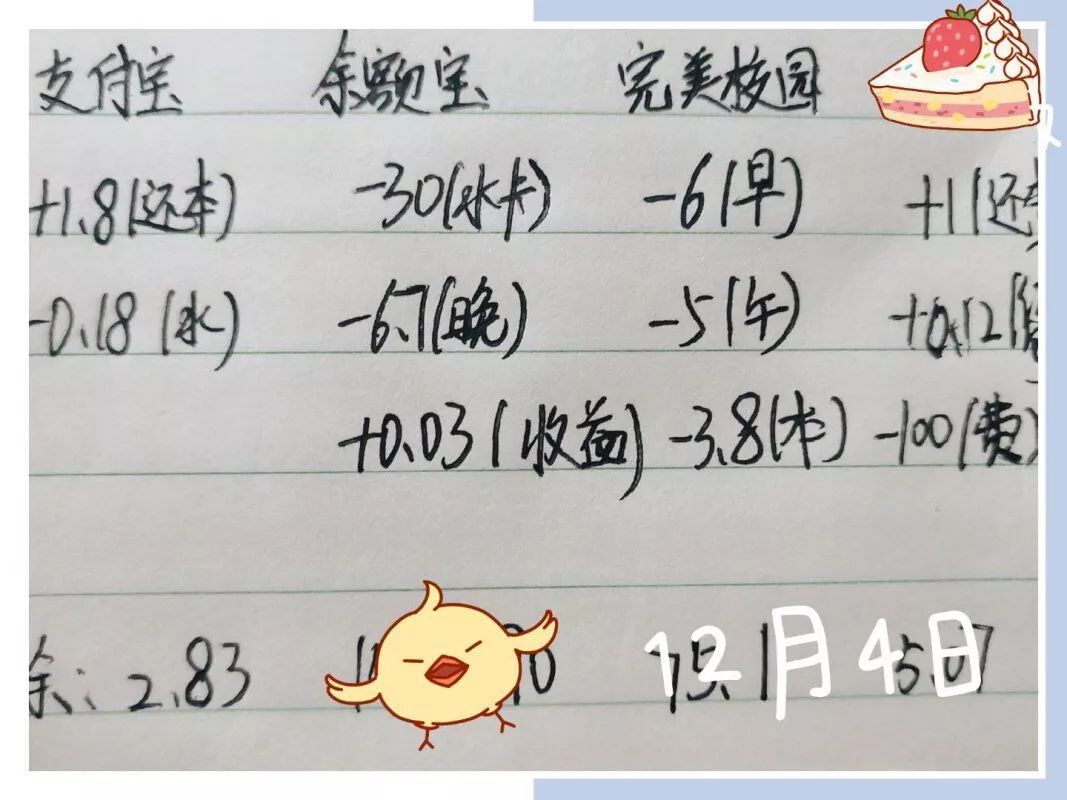 支付宝 余额宝 完美校园
+1.8(还本) -30(水卡) -6(早) +1(还
-0.18(水) -6.7(晚) -5(午) +0.12(
+0.03(收益) -3.8(本) -100(费)
余: 2.83 75.1 5.07
12月4日